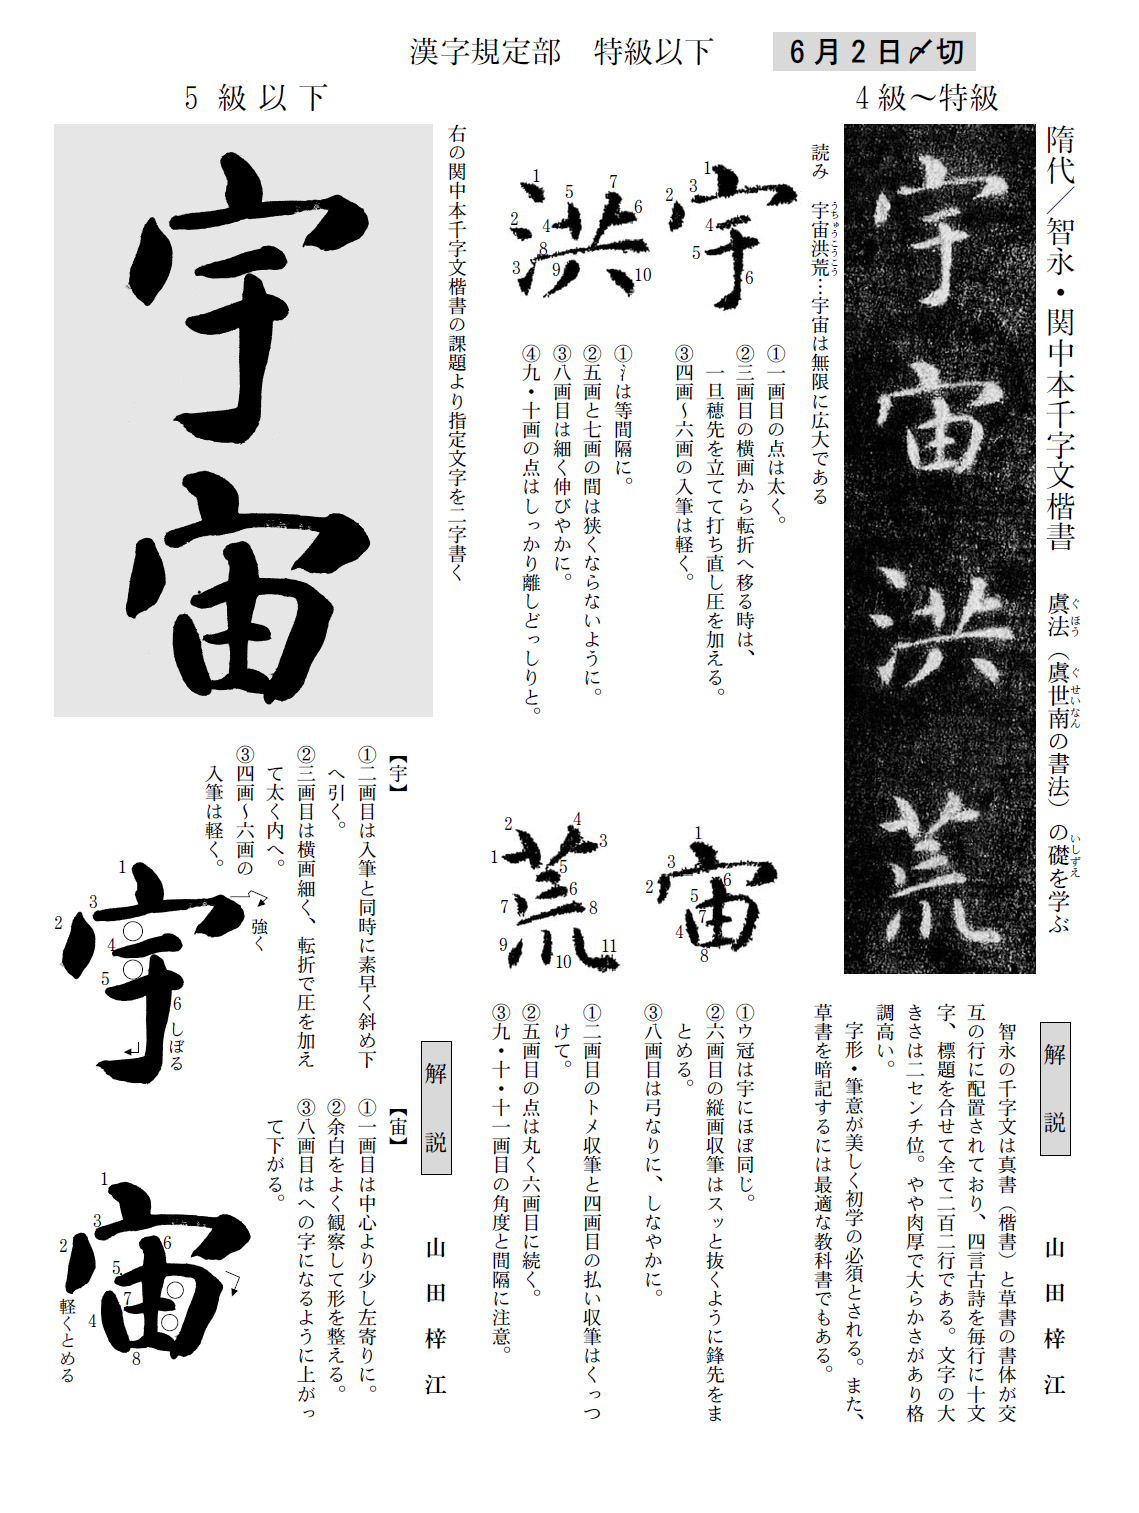 漢字規定部　特級以下
６月２日〆切
４級～特級
隋代／智永・関中本千字文楷書　虞法（虞世南の書法）の礎を学ぶ
ぐほう
ぐせいなん
いしずえ
宇宙洪荒
読み　宇宙洪荒…宇宙は無限に広大である
うちゅうこうこう
宇
1
2
3
4
5
6
①一画目の点は太く。
②三画目の横画から転折へ移る時は、
一旦穂先を立てて打ち直し圧を加える。
③四画～六画の入筆は軽く。
洪
1
2
3
4
5
6
7
8
9
10
①氵は等間隔に。
②五画と七画の間は狭くならないように。
③八画目は細く伸びやかに。
④九・十画の点はしっかり離しどっしりと。
宙
1
2
3
4
5
6
7
8
①ウ冠は宇にほぼ同じ。
②六画目の縦画収筆はスッと抜くように鋒先をま
とめる。
③八画目は弓なりに、しなやかに。
荒
1
2
3
4
5
6
7
8
9
10
11
①二画目のトメ収筆と四画目の払い収筆はくっつ
けて。
②五画目の点は丸く六画目に続く。
③九・十・十一画目の角度と間隔に注意。
解説
山田梓江
智永の千字文は真書（楷書）と草書の書体が交
互の行に配置されており、四言古詩を毎行に十文
字、標題を合せて全て二百二行である。文字の大
きさは二センチ位。やや肉厚で大らかさがあり格
調高い。
字形・筆意が美しく初学の必須とされる。また、
草書を暗記するには最適な教科書でもある。
５級以下
右の関中本千字文楷書の課題より指定文字を二字書く
宇宙
解説
山田梓江
【宇】
①二画目は入筆と同時に素早く斜め下
へ引く。
②三画目は横画細く、転折で圧を加え
て太く内へ。
③四画～六画の
入筆は軽く。
宇
1
2
3
4
5
6
強く
しぼる
【宙】
①一画目は中心より少し左寄りに。
②余白をよく観察して形を整える。
③八画目はへの字になるように上がっ
て下がる。
宙
1
2
3
4
5
6
7
8
軽くとめる